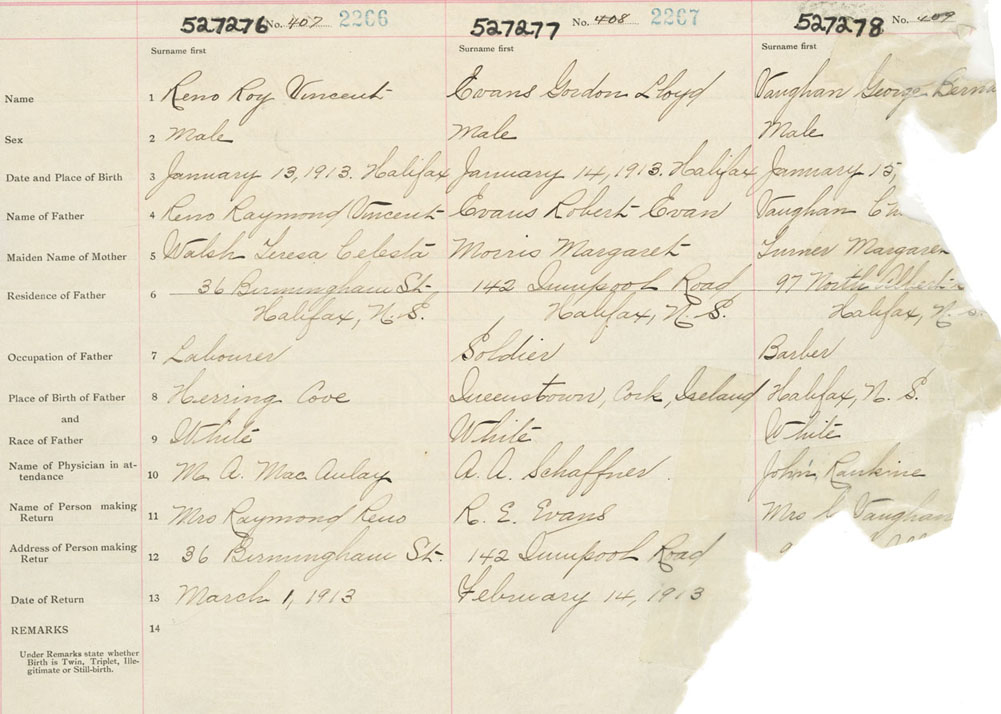 527276 No. 407 2266
Surname first
527277 No. 408 2267
Surname first
527278 No. 409
Surname first
Name 1 Reno Roy Vincent Evans Gordon Lloyd Vaughan George Berna
Sex 2 Male Male Male
Date and Place of Birth 3 January 13, 1913. Halifax January 14, 1913. Halifax January 15,
Name of Father 4 Reno Raymond Vincent Evans Robert Evan Vaughan Ch
Maiden Name of Mother 5 Walsh Teresa Celesta Morris Margaret Turner Margaret
Residence of Father 6 36 Birmingham St. 142 Road 97 North
Halifax, N. S. Halifax, N. S. Halifax, N. S.
Occupation of Father 7 Labourer Soldier Barber
Place of Birth of Father 8 Herring Cove Queenstown, Cork, Ireland Halifax, N. S.
and
Race of Father 9 White White White
Name of Physician in at-
tendance 10 M. A. Mac Aulay A. A. Schaffner John Rankine
Name of Person making
Return 11 Mrs Raymond Reno R. E. Evans Mrs Vaughan
Address of Person making
Retur 12 36 Birmingham St. 142 Road
Date of Return 13 March 1, 1913 February 14, 1913
REMARKS 14
Under Remarks state whether
Birth is Twin, Triplet, Ille-
gitimate or Still-birth.